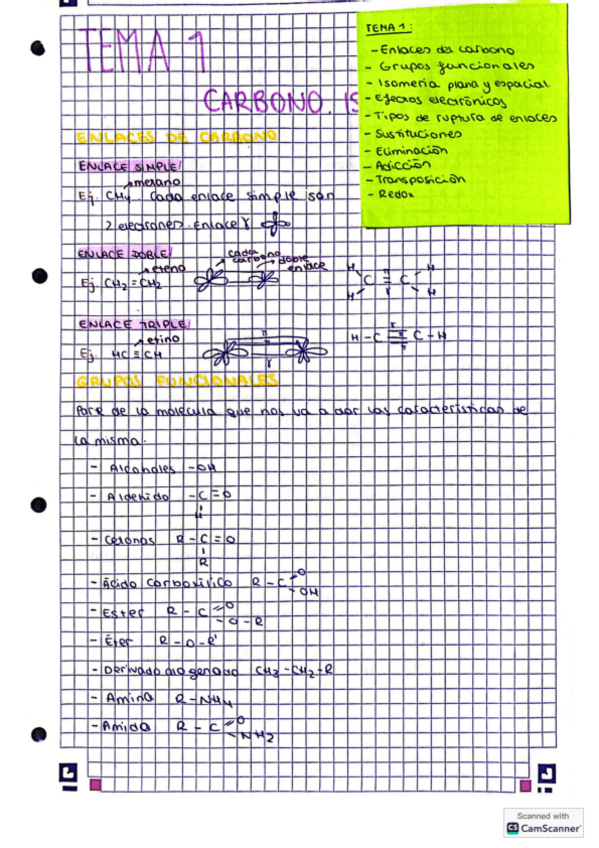 TEMA 1
CARBONO. IS
TEMA 1:
- Enlaces del carbono
- Grupos funcionales
- Isomería plana y espacial
- Efectos electrónicos
- Tipos de ruptura de enlaces
- Sustituciones
- Eliminación
- Adicción
- Transposición
- Redox
ENLACES DE CARBONO
ENLACE SIMPLE/
metano
Ej. CH4 Cada enlace simple son
2 electrones. Enlace γ
ENLACE DOBLE/
eteno
Ej CH2=CH2
cada carbono
doble enlace
H H
C = C
H H
ENLACE TRIPLE/
etino
Ej. HC≡CH
H-C≡C-H
GRUPOS FUNCIONALES
Parte de la molécula que nos va a dar las características de
la misma.
- Alcoholes -OH
- Aldehido -C=O
H
- Cetonas R-C=O
R
- Ácido Carboxílico R-C=O
-OH
- Ester R-C=O
-O-R
- Éter R-O-R'
- Derivado alogenado CH3-CH2-R
- Amina R-NH4
- Amida R-C=O
-NH2
Scanned with
CS CamScanner